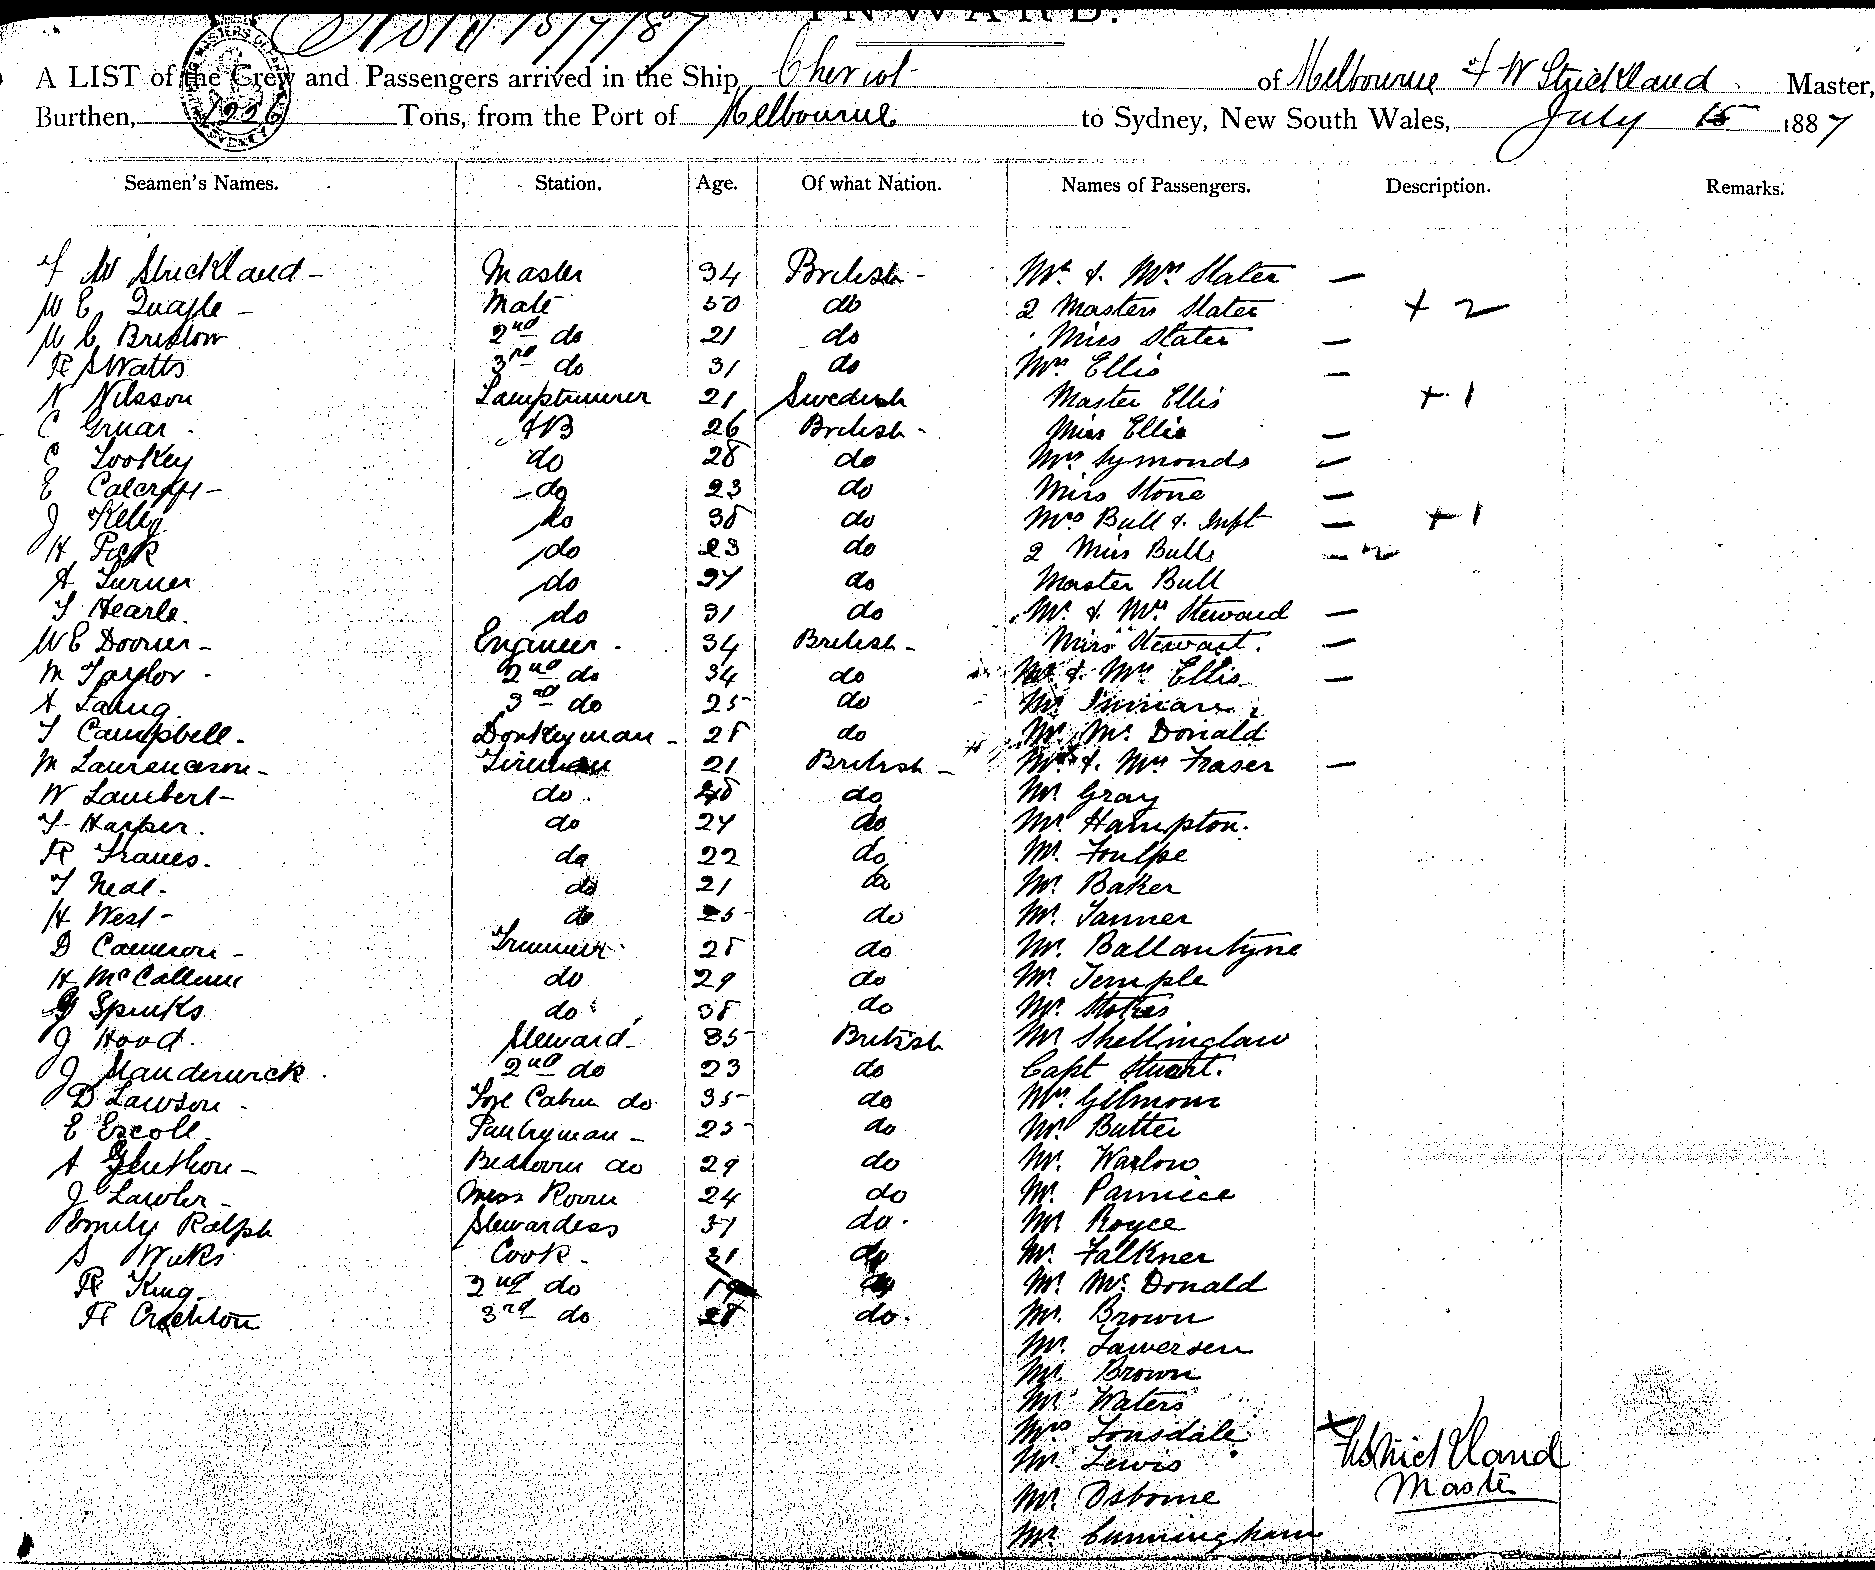 INWARD.
15/7/87
A LIST of the Crew and Passengers arrived in the Ship Cheviot of Melbourne F W Strickland Master,
Burthen, 1226 Tons, from the Port of Melbourne to Sydney, New South Wales, July 15 1887
Seamen's Names. Station. Age. Of what Nation. Names of Passengers. Description. Remarks.
F W Strickland - Master 34 British - Mr & Mrs Slater —
W E Quayle - Mate 50 do 2 Masters Slater + 2
W C Bristow 2nd do 21 do Miss Slater —
R S Watts 3rd do 31 do Mrs Ellis —
N Nilsson Lamptrimmer 21 Swedish Master Ellis + 1
C Gruar AB 26 British - Miss Ellis —
C Lookey do 28 do Mrs Symonds —
E Calcraft - do 23 do Miss Stone —
J Kelly do 38 do Mrs Bull & Inft — + 1
H Peek do 23 do 2 Miss Bulls — 2
A Turner do 27 do Master Bull
T Hearle. do 31 do Mr & Mrs Steward —
W E Doorier - Engineer. 34 British - Miss Stewart. —
M Taylor - 2nd do 34 do Mr & Mrs Ellis —
A Laing 3rd do 25 do Mr
T Campbell - Donkeyman - 28 do Mr McDonald
M Laurenceson - Fireman 21 British - Mr & Mrs Fraser —
W Lambert - do. do Mr Gray
T Harper. do 27 do Mr Hampton.
R Franes. do 22 do Mr Foulpe
T Neal. do 21 do Mr Baker
H West - do 25 do Mr Tanner
D Cameron - Trimmer 28 do Mr Ballantyne
H McCallum do 29 do Mr Temple
G Spinks do 38 do Mr Stokes
J Hood. Steward 35 British Mr Shellinglaw
J Manderwick. 2nd do 23 do Capt Stuart.
D Lawson - Fore Cabin do 35 do Mrs Gilmour
E Escott Pantryman - 23 do Mr Butter
A Glenthon - Bedroom do 29 do Mr Warlow
J Lawler - Mess Room 24 do Mr Pannice
Emily Ralph Stewardess 37 do. Mr Royce
S Weeks Cook. 31 do Mr Falkner
R King. 2nd do 19 do Mr McDonald
R Creehton 3rd do 28 do. Mr Brown
Mr Lawersen
Mr Brown
Mr Waters
Mrs Lonsdale
Mr Lewis
F W Strickland
Master
Mr Osborne
Mr Cunningham